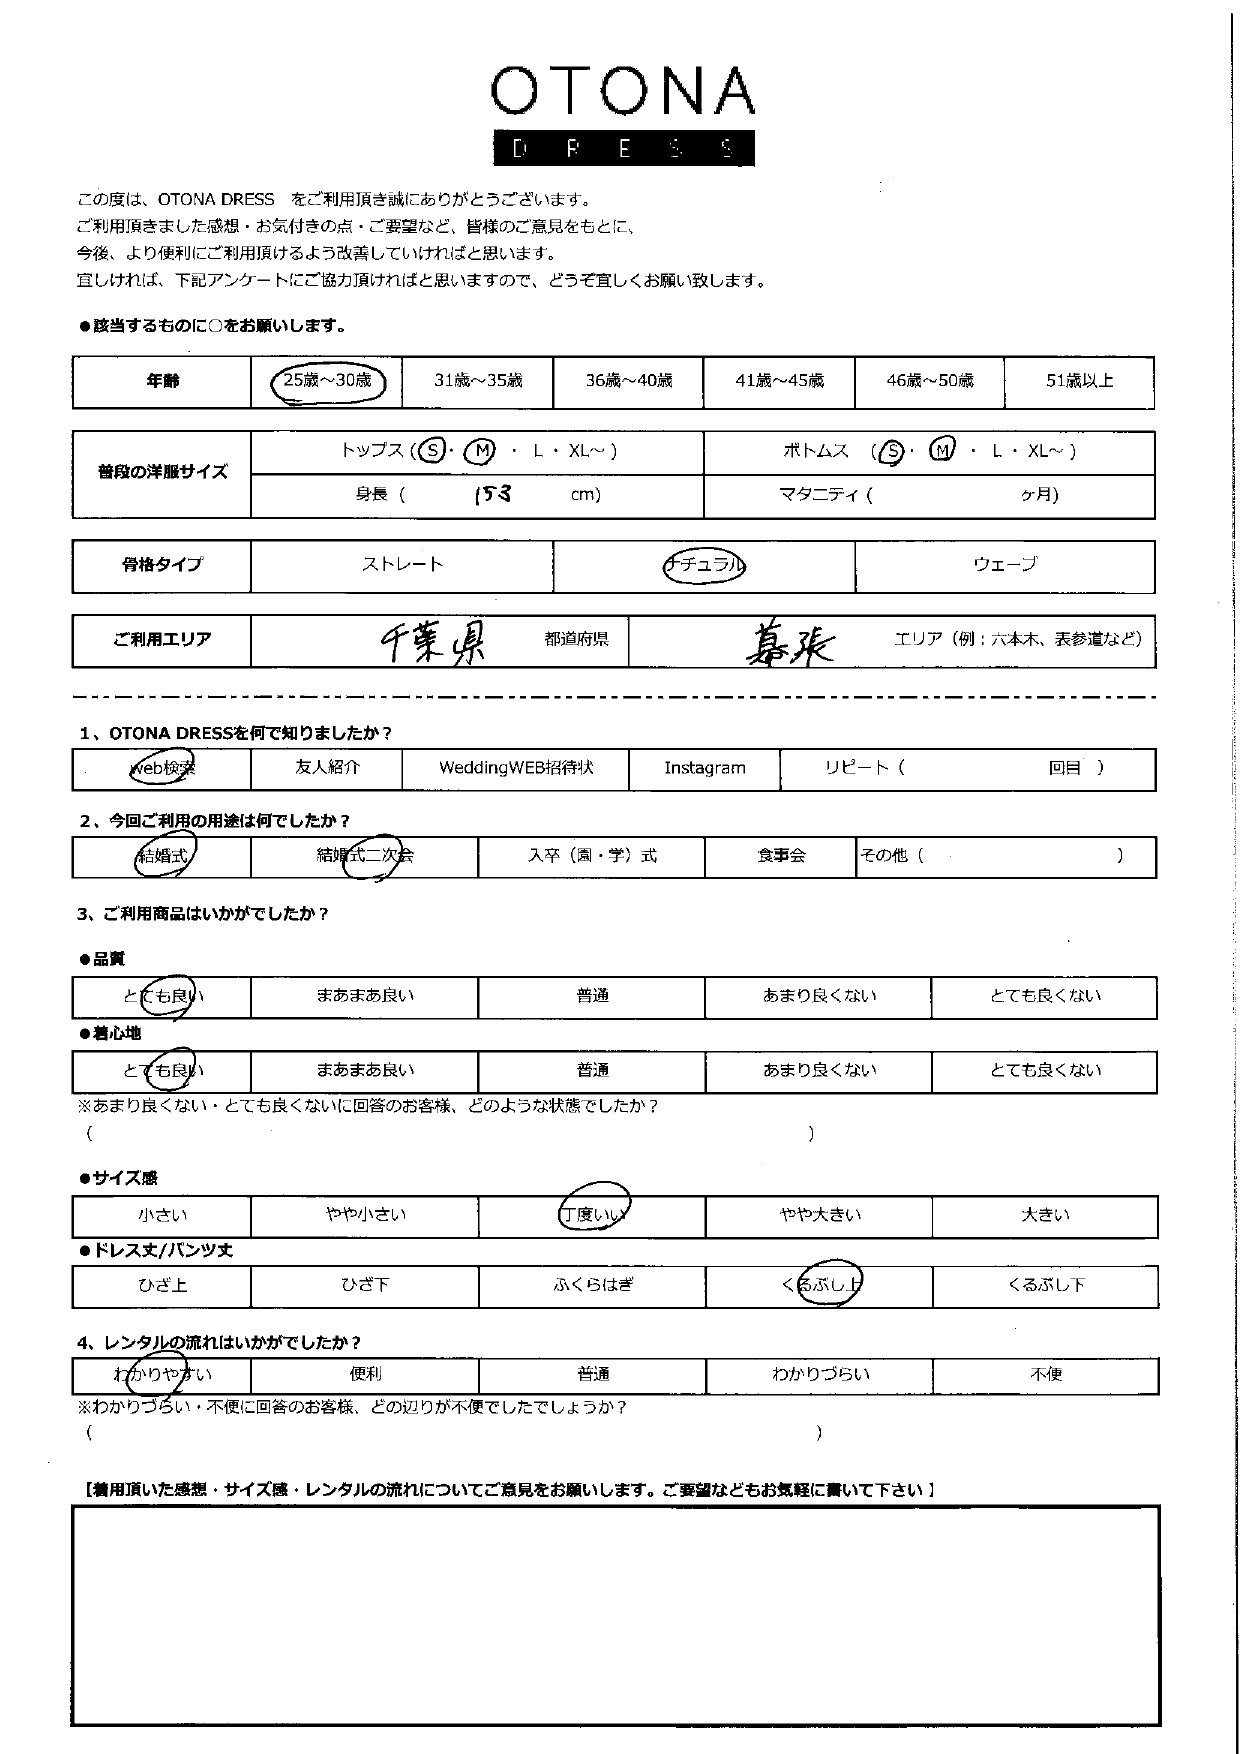 OTONA
DRESS
この度は、OTONA DRESS　をご利用頂き誠にありがとうございます。
ご利用頂きました感想・お気付きの点・ご要望など、皆様のご意見をもとに、
今後、より便利にご利用頂けるよう改善していければと思います。
宜しければ、下記アンケートにご協力頂ければと思いますので、どうぞ宜しくお願い致します。
●該当するものに○をお願いします。
年齢 25歳～30歳 31歳～35歳 36歳～40歳 41歳～45歳 46歳～50歳 51歳以上
普段の洋服サイズ
トップス (S・M ・ L ・ XL～ ) ボトムス (S・M ・ L ・ XL～ )
身長 ( 153 cm) マタニティ ( ヶ月)
骨格タイプ ストレート ナチュラル ウェーブ
ご利用エリア 千葉県 都道府県 幕張 エリア（例：六本木、表参道など）
1、OTONA DRESSを何で知りましたか？
web検索 友人紹介 WeddingWEB招待状 Instagram リピート ( 回目 )
2、今回ご利用の用途は何でしたか？
結婚式 結婚式二次会 入卒（園・学）式 食事会 その他 ( )
3、ご利用商品はいかがでしたか？
●品質
とても良い まあまあ良い 普通 あまり良くない とても良くない
●着心地
とても良い まあまあ良い 普通 あまり良くない とても良くない
※あまり良くない・とても良くないに回答のお客様、どのような状態でしたか？
( )
●サイズ感
小さい やや小さい 丁度いい やや大きい 大きい
●ドレス丈/パンツ丈
ひざ上 ひざ下 ふくらはぎ くるぶし上 くるぶし下
4、レンタルの流れはいかがでしたか？
わかりやすい 便利 普通 わかりづらい 不便
※わかりづらい・不便に回答のお客様、どの辺りが不便でしたでしょうか？
( )
【着用頂いた感想・サイズ感・レンタルの流れについてご意見をお願いします。ご要望などもお気軽に書いて下さい】